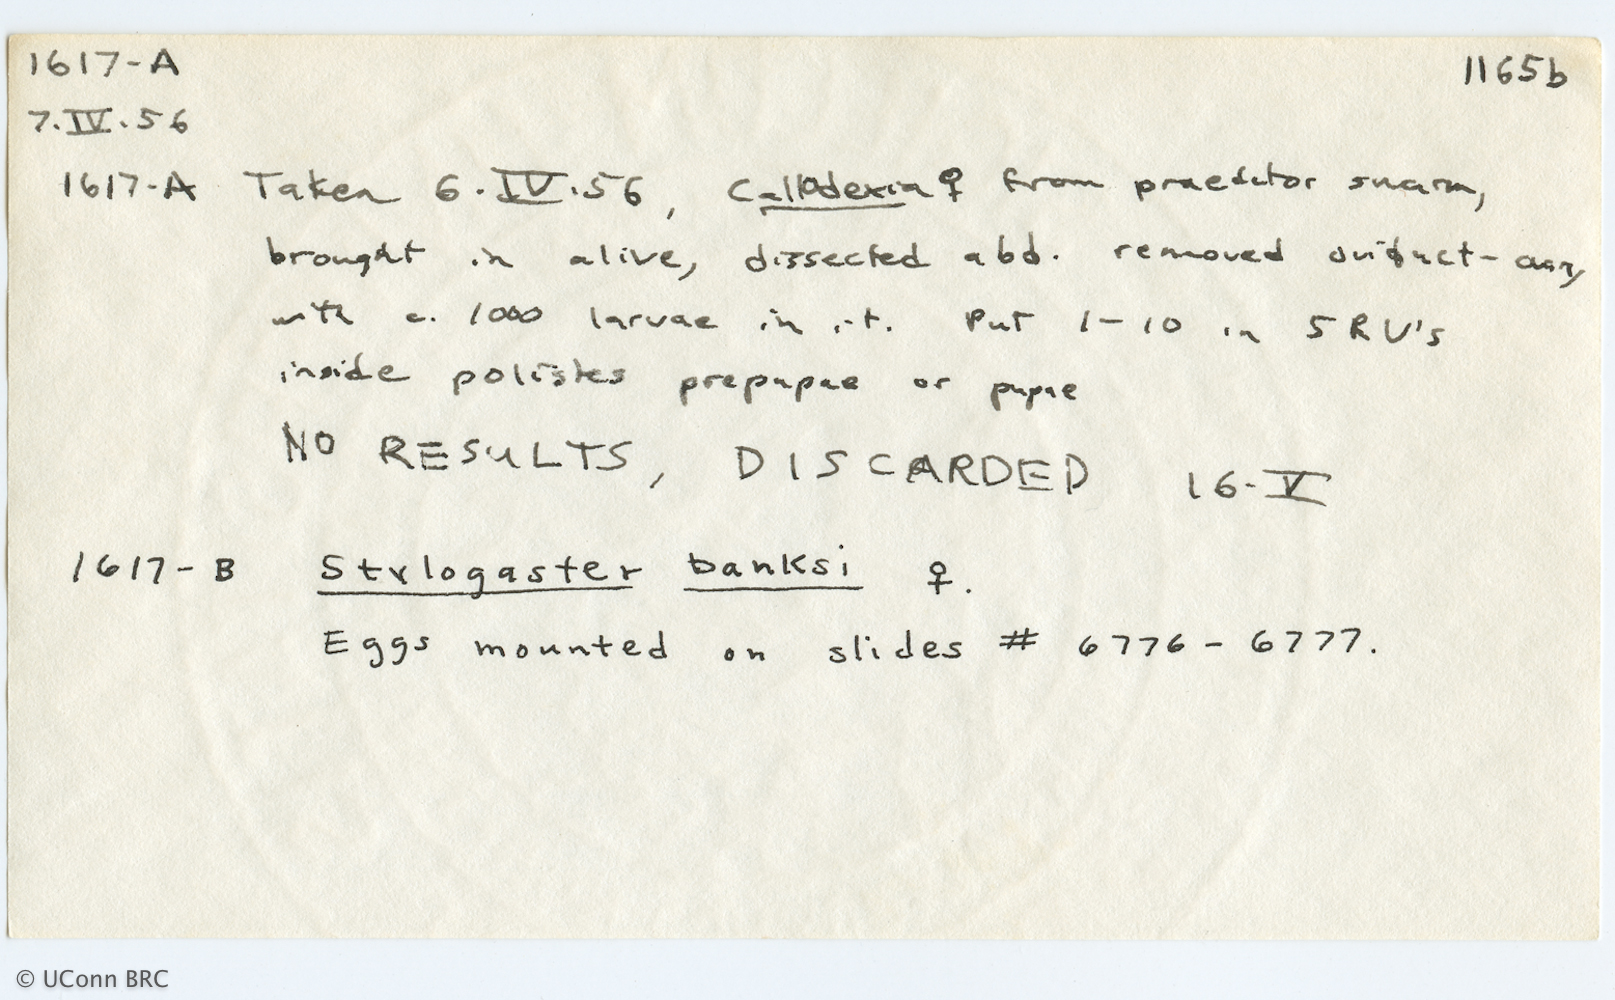 1617-A 1165b
7.IV.56
1617-A Taken 6.IV.56, Callodexia ♀ from praedator swarm,
brought in alive, dissected abd. removed oviduct-
with c. 1000 larvae in it. Put 1-10 in 5 RV's
inside polistes prepupae or pupae
NO RESULTS, DISCARDED 16-V
1617-B Stylogaster banksi ♀.
Eggs mounted on slides # 6776-6777.
© UConn BRC